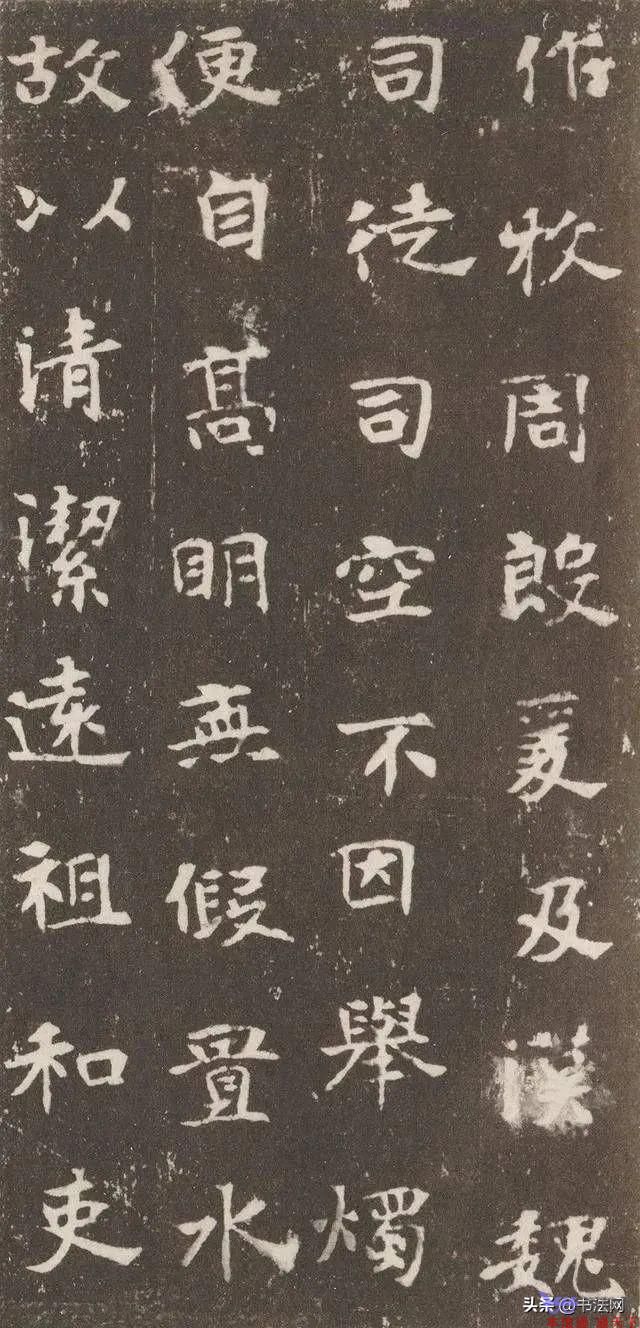 作牧周殷爰及漢魏
司徒司空不因舉燭
便自髙明無假置水
故以清潔遠祖和吏
头条 @书法网